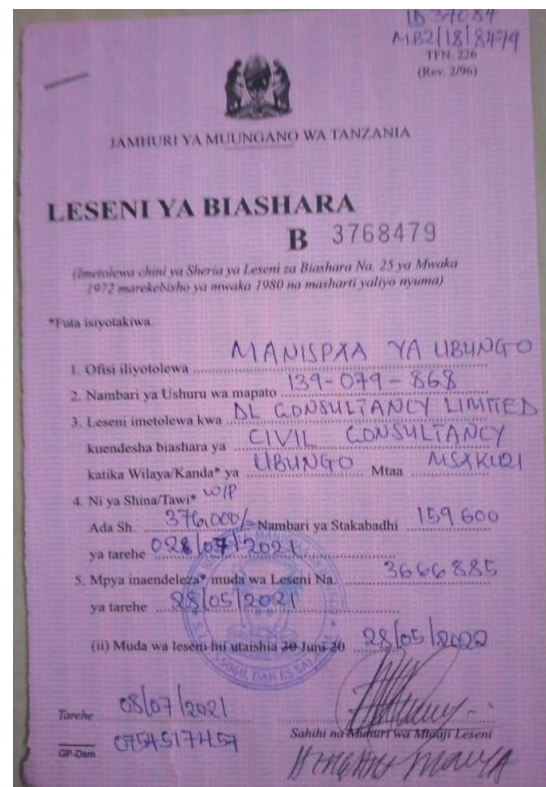 ID 37084
MB2/18/8479
TFN. 226
(Rev. 2/96)
JAMHURI YA MUUNGANO WA TANZANIA
LESENI YA BIASHARA
B 3768479
(Imetolewa chini ya Sheria ya Leseni za Biashara Na. 25 ya Mwaka
1972 marekebisho ya mwaka 1980 na masharti yaliyo nyuma)
*Futa isiyotakiwa.
1. Ofisi iliyotolewa MANISPAA YA UBUNGO
2. Nambari ya Ushuru wa mapato 139-079-868
3. Leseni imetolewa kwa DL CONSULTANCY LIMITED
kuendesha biashara ya CIVIL CONSULTANCY
katika Wilaya/Kanda* ya UBUNGO Mtaa MSAKUZI
4. Ni ya Shina/Tawi* W/P
Ada Sh. 376,000/= Nambari ya Stakabadhi 159600
ya tarehe 028/07/2021
5. Mpya inaendeleza* muda wa Leseni Na. 3666885
ya tarehe 28/05/2021
(ii) Muda wa leseni hii utaishia 30 Juni 20 28/05/2022
Tarehe 08/07/2021
Sahihi na Muhuri wa Mtoaji Leseni
GP-Dsm 0754517457